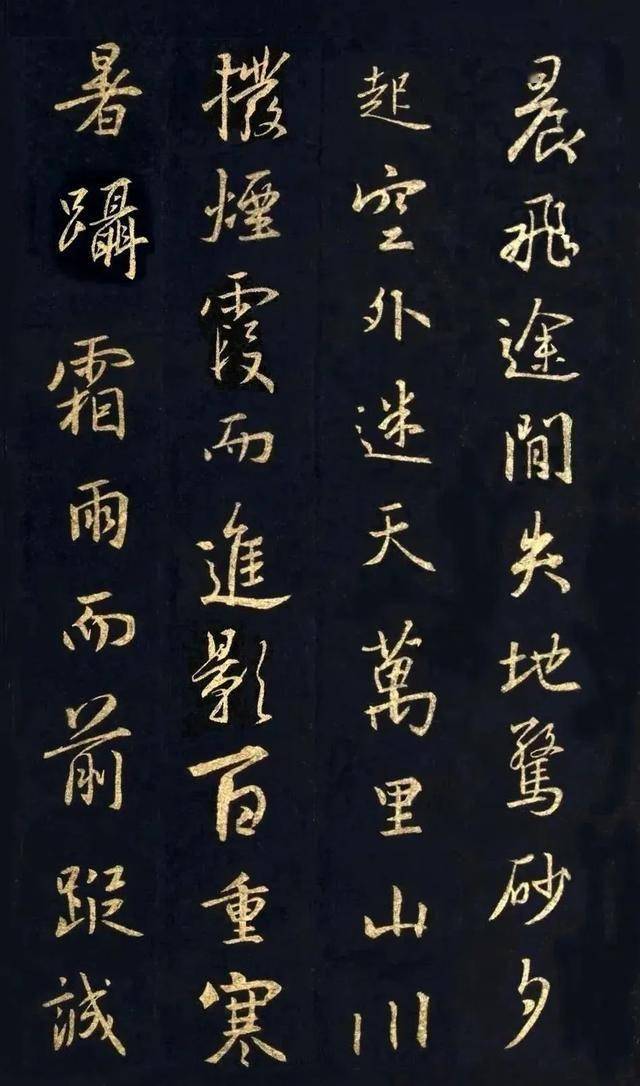 晨飛途間失地驚砂夕
起空外迷天萬里山川
撥煙霞而進影百重寒
暑躡霜雨而前蹤誠